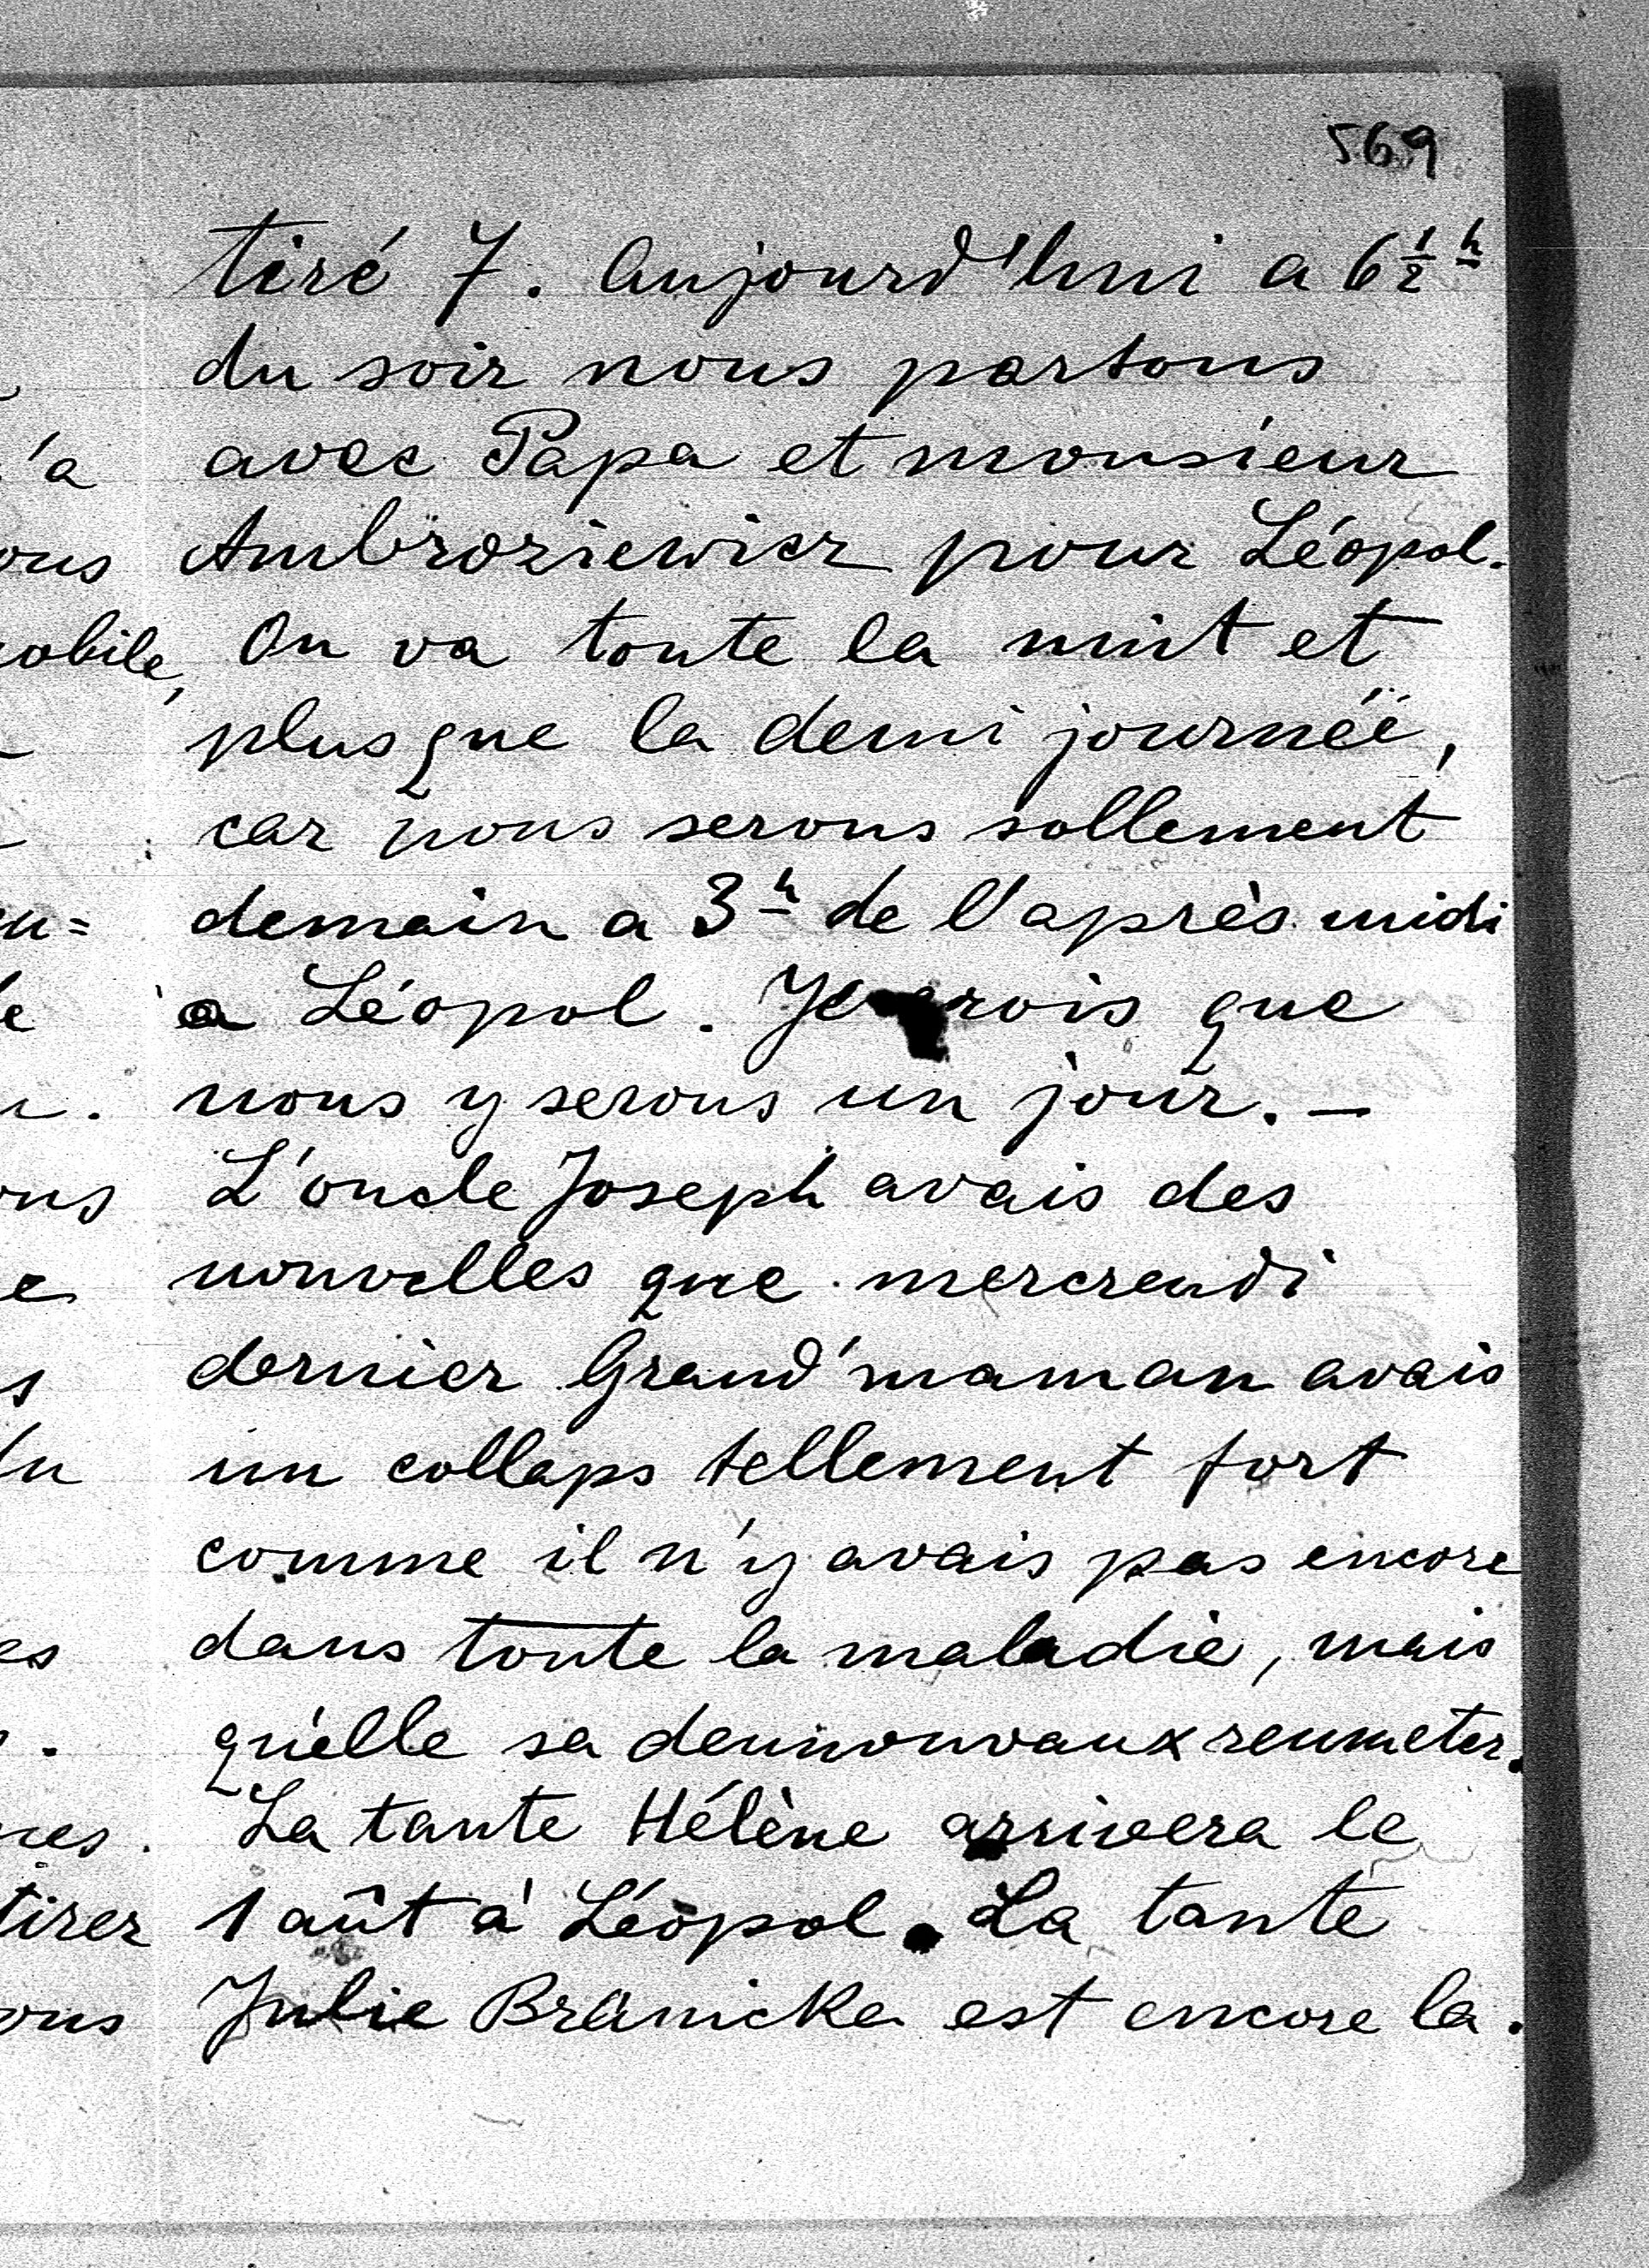 569
tiré 7. Aujourd'hui a 6 1/2 h
du soir nous partons
avec Papa et monsieur
Ambroziewicz pour Léopol.
On va toute la nuit et
plus que la demi journéë,
car nous serons sollement
demain a 3 h de l'après midi
a Léopol. Je crois que
nous y serons un jour. —
L'oncle Joseph avais des
nouvelles que mercreudi
dernier Grand'maman avais
un collaps tellement fort
comme il n'y avais pas encore
dans toute la maladie, mais
qu'elle sa deunouvaux reumeter.
La tante Hélène arrivera le
1 aût à Léopol. La tante
Julie Branicka est encore la.
'a
ous
obile,
eu=
le
ous
e
s
du
es
ces.
tirer
ous